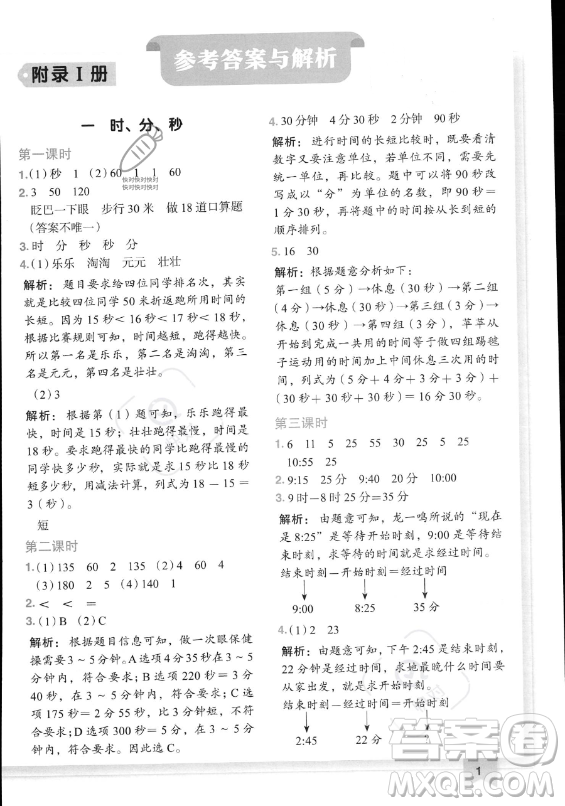 参考答案与解析
附录Ⅰ册
一 时、分、秒
第一课时
1.(1)秒 1 (2)60 1 1 60
2.3 50 120
眨巴一下眼 步行30米 做18道口算题
(答案不唯一)
3.时 分 秒秒 分
4.(1)乐乐 淘淘 元元 壮壮
解析：题目要求给四位同学排名次，其实
就是比较四位同学50米折返跑所用时间的
长短。因为15秒＜16秒＜17秒＜18秒。
根据比赛规则可知，时间越短，跑得越快。
所以第一名是乐乐，第二名是淘淘，第三名
是元元，第四名是壮壮。
(2)3
解析：根据第（1）题可知，乐乐跑得最
快，时间是15秒；壮壮跑得最慢，时间是18
秒。要求跑得最快的同学比跑得最慢的
同学快多少秒，实际就是求15秒比18秒
短多少，用减法计算，列式为18－15＝
3（秒）。
短
第二课时
1.(1)135 60 (2)4 60 4
(3)180 2 5 (4)140 1
2.＜ ＜ ＝
3.(1)B (2)C
解析：根据题目信息可知，做一次眼保健
操需要3～5分钟。A选项4秒不在3～5
分钟内，不符合要求；B选项220秒＝3分
40秒，在3～5分钟内，符合要求；C选
项195秒＝3分15秒，在3～5分钟内，符
合要求；D选项300秒＝5分，在3～5分
钟内，符合要求。因此选C。
4.30分钟 4分30秒 2分钟 90秒
解析：进行时间的长短比较时，既要看清
数字又要注意单位，若单位不同，要先
统一单位，再进行比较。可以将题中的90秒
改写成以“分”为单位的名数，即90秒＝
1分30秒，再将题中的时间按从长到短的
顺序排列。
5.16 30
解析：根据题意分析如下：
第一组(5分)→休息(30秒)→第二组
(4分)→休息(30秒)→第三组(3分)→
休息(30秒)→第四组(3分)，芊芊从
开始到完成一共用的时间等于做四组踢毽
子运动用的时间加上中间休息三次用的时
间，列式为(5分＋4分＋3分＋3分)＋
(30秒＋30秒＋30秒)＝16分30秒。
第三课时
1.6 11 5 35 25 25
10:55 25
2.9:15 20分 9:40 10:00
3.9时－8时25分＝35分
解析：由题意可知，龙一鸣所说的“现在
是8:25”是等待开始时刻，9:00是等待结
束时刻，求等待的时间就是求经过时间。
结束时刻－开始时刻＝经过时间
9:00 8:25 35分
4.(1)2 23
解析：由题意可知，下午2:45是结束时刻，
22分是经过时间，求他最晚什么时间要从
家出发，就是求开始时刻。
结束时刻－经过时间＝开始时刻
2:45 22分 2:23
1
快对快对快对
快对快对快对
答案圈
MXQE.COM